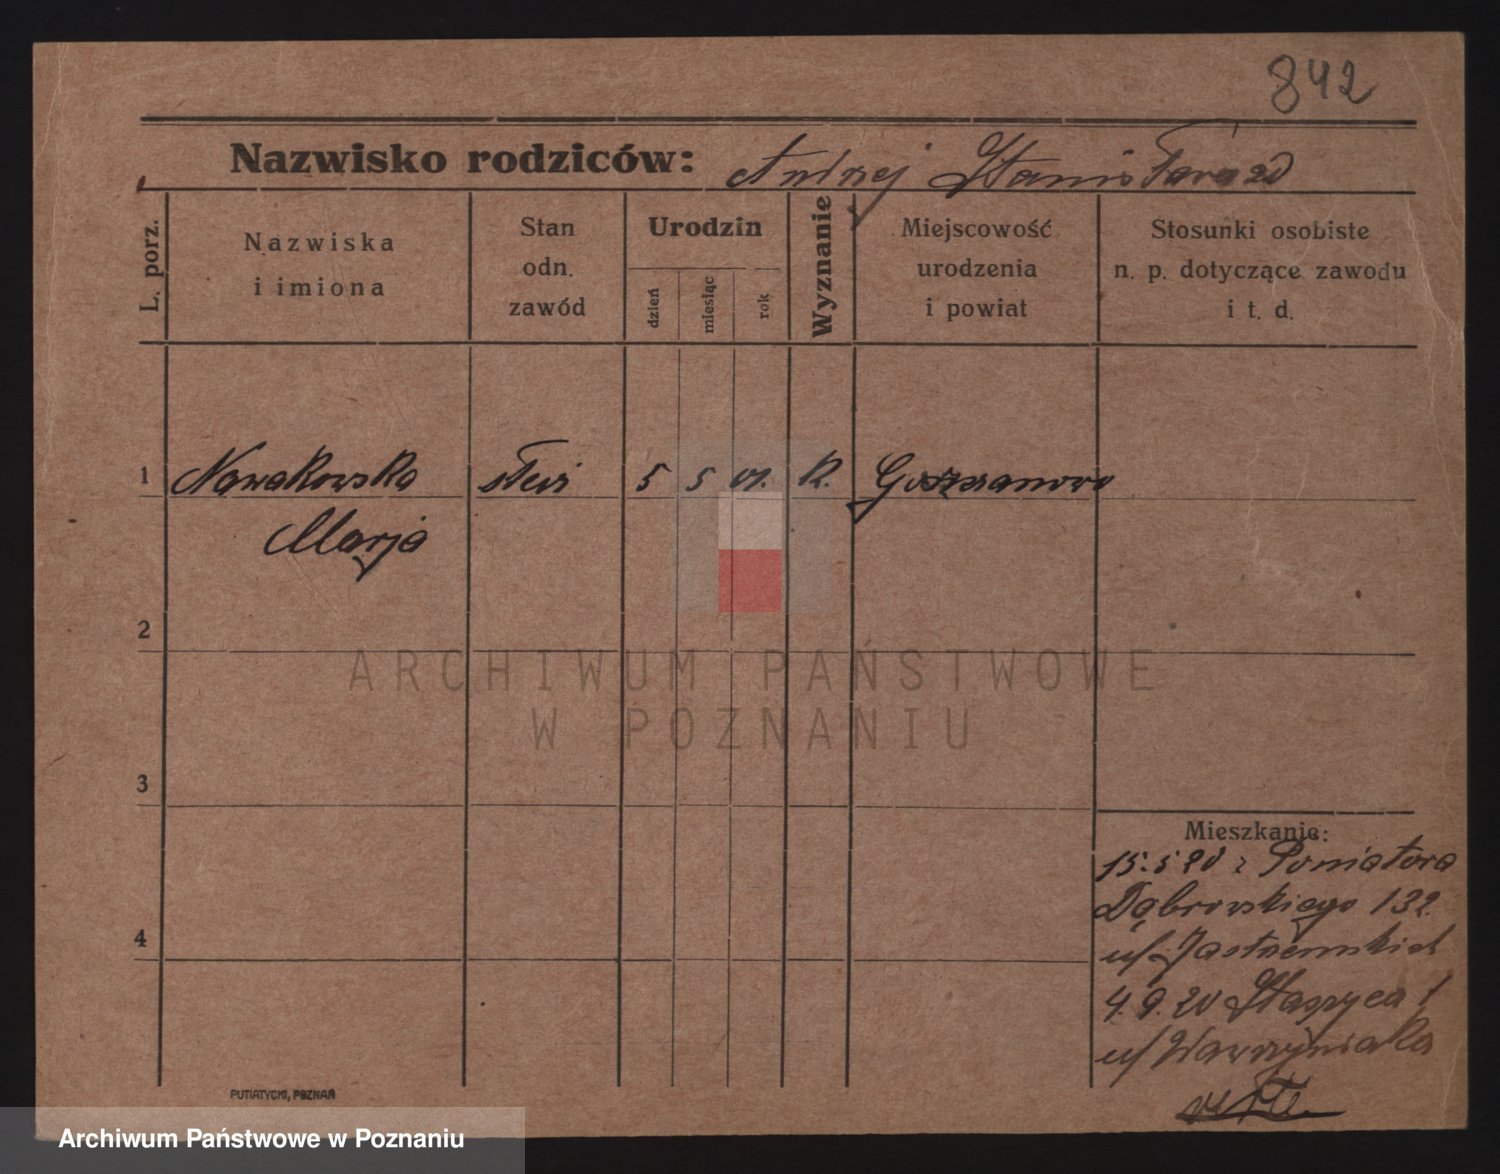 842
Nazwisko rodziców: Andrzej Stanisława
L. porz.
Nazwiska
i imiona
Stan
odn.
zawód
Urodzin
dzień
miesiąc
rok
Wyznanie
Miejscowość
urodzenia
i powiat
Stosunki osobiste
n. p. dotyczące zawodu
i t. d.
1 Nowakowska 5 5 01. K.
Marja
2
ARCHIWUM PAŃSTWOWE
W POZNANIU
3
Mieszkanie:
15.5.20 z
Dąbrowskiego 132
4
u/
4.9.20 Staszyca 1
u/Wawrzyniaka
verte
PUTIATYCKI, POZNAŃ
Archiwum Państwowe w Poznaniu